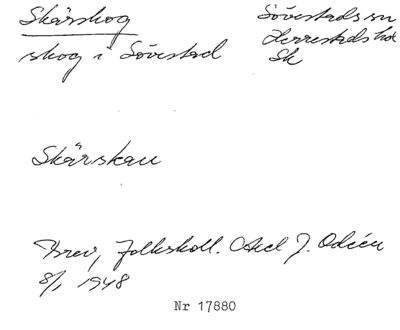 Skärskog
skog i Sövestad
Sövestads sn
Herrestads hd
Sk
Skärskau
Brev, folkskoll. Axel J. Odéen
8/1 1948
Nr 17880